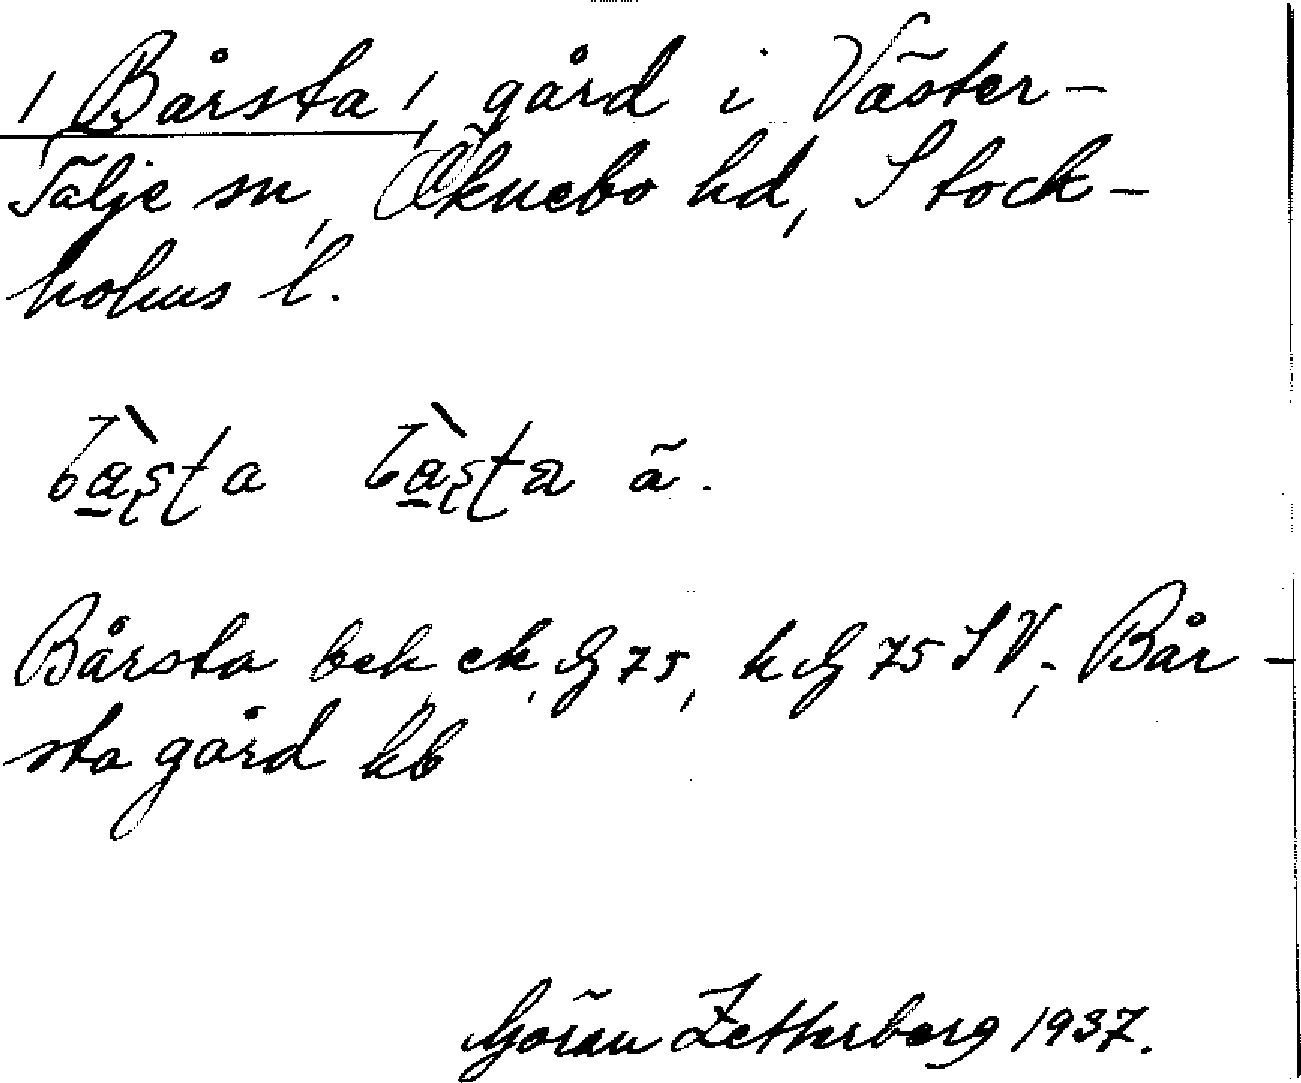 / Bårsta /, gård i Väster-
Tälje sn, Öknebo hd, Stock-
holms l.
Bårsta bek, ek, G 75, k G 75 SV; Bår-
sta gård kb
Göran Zetterberg 1937.